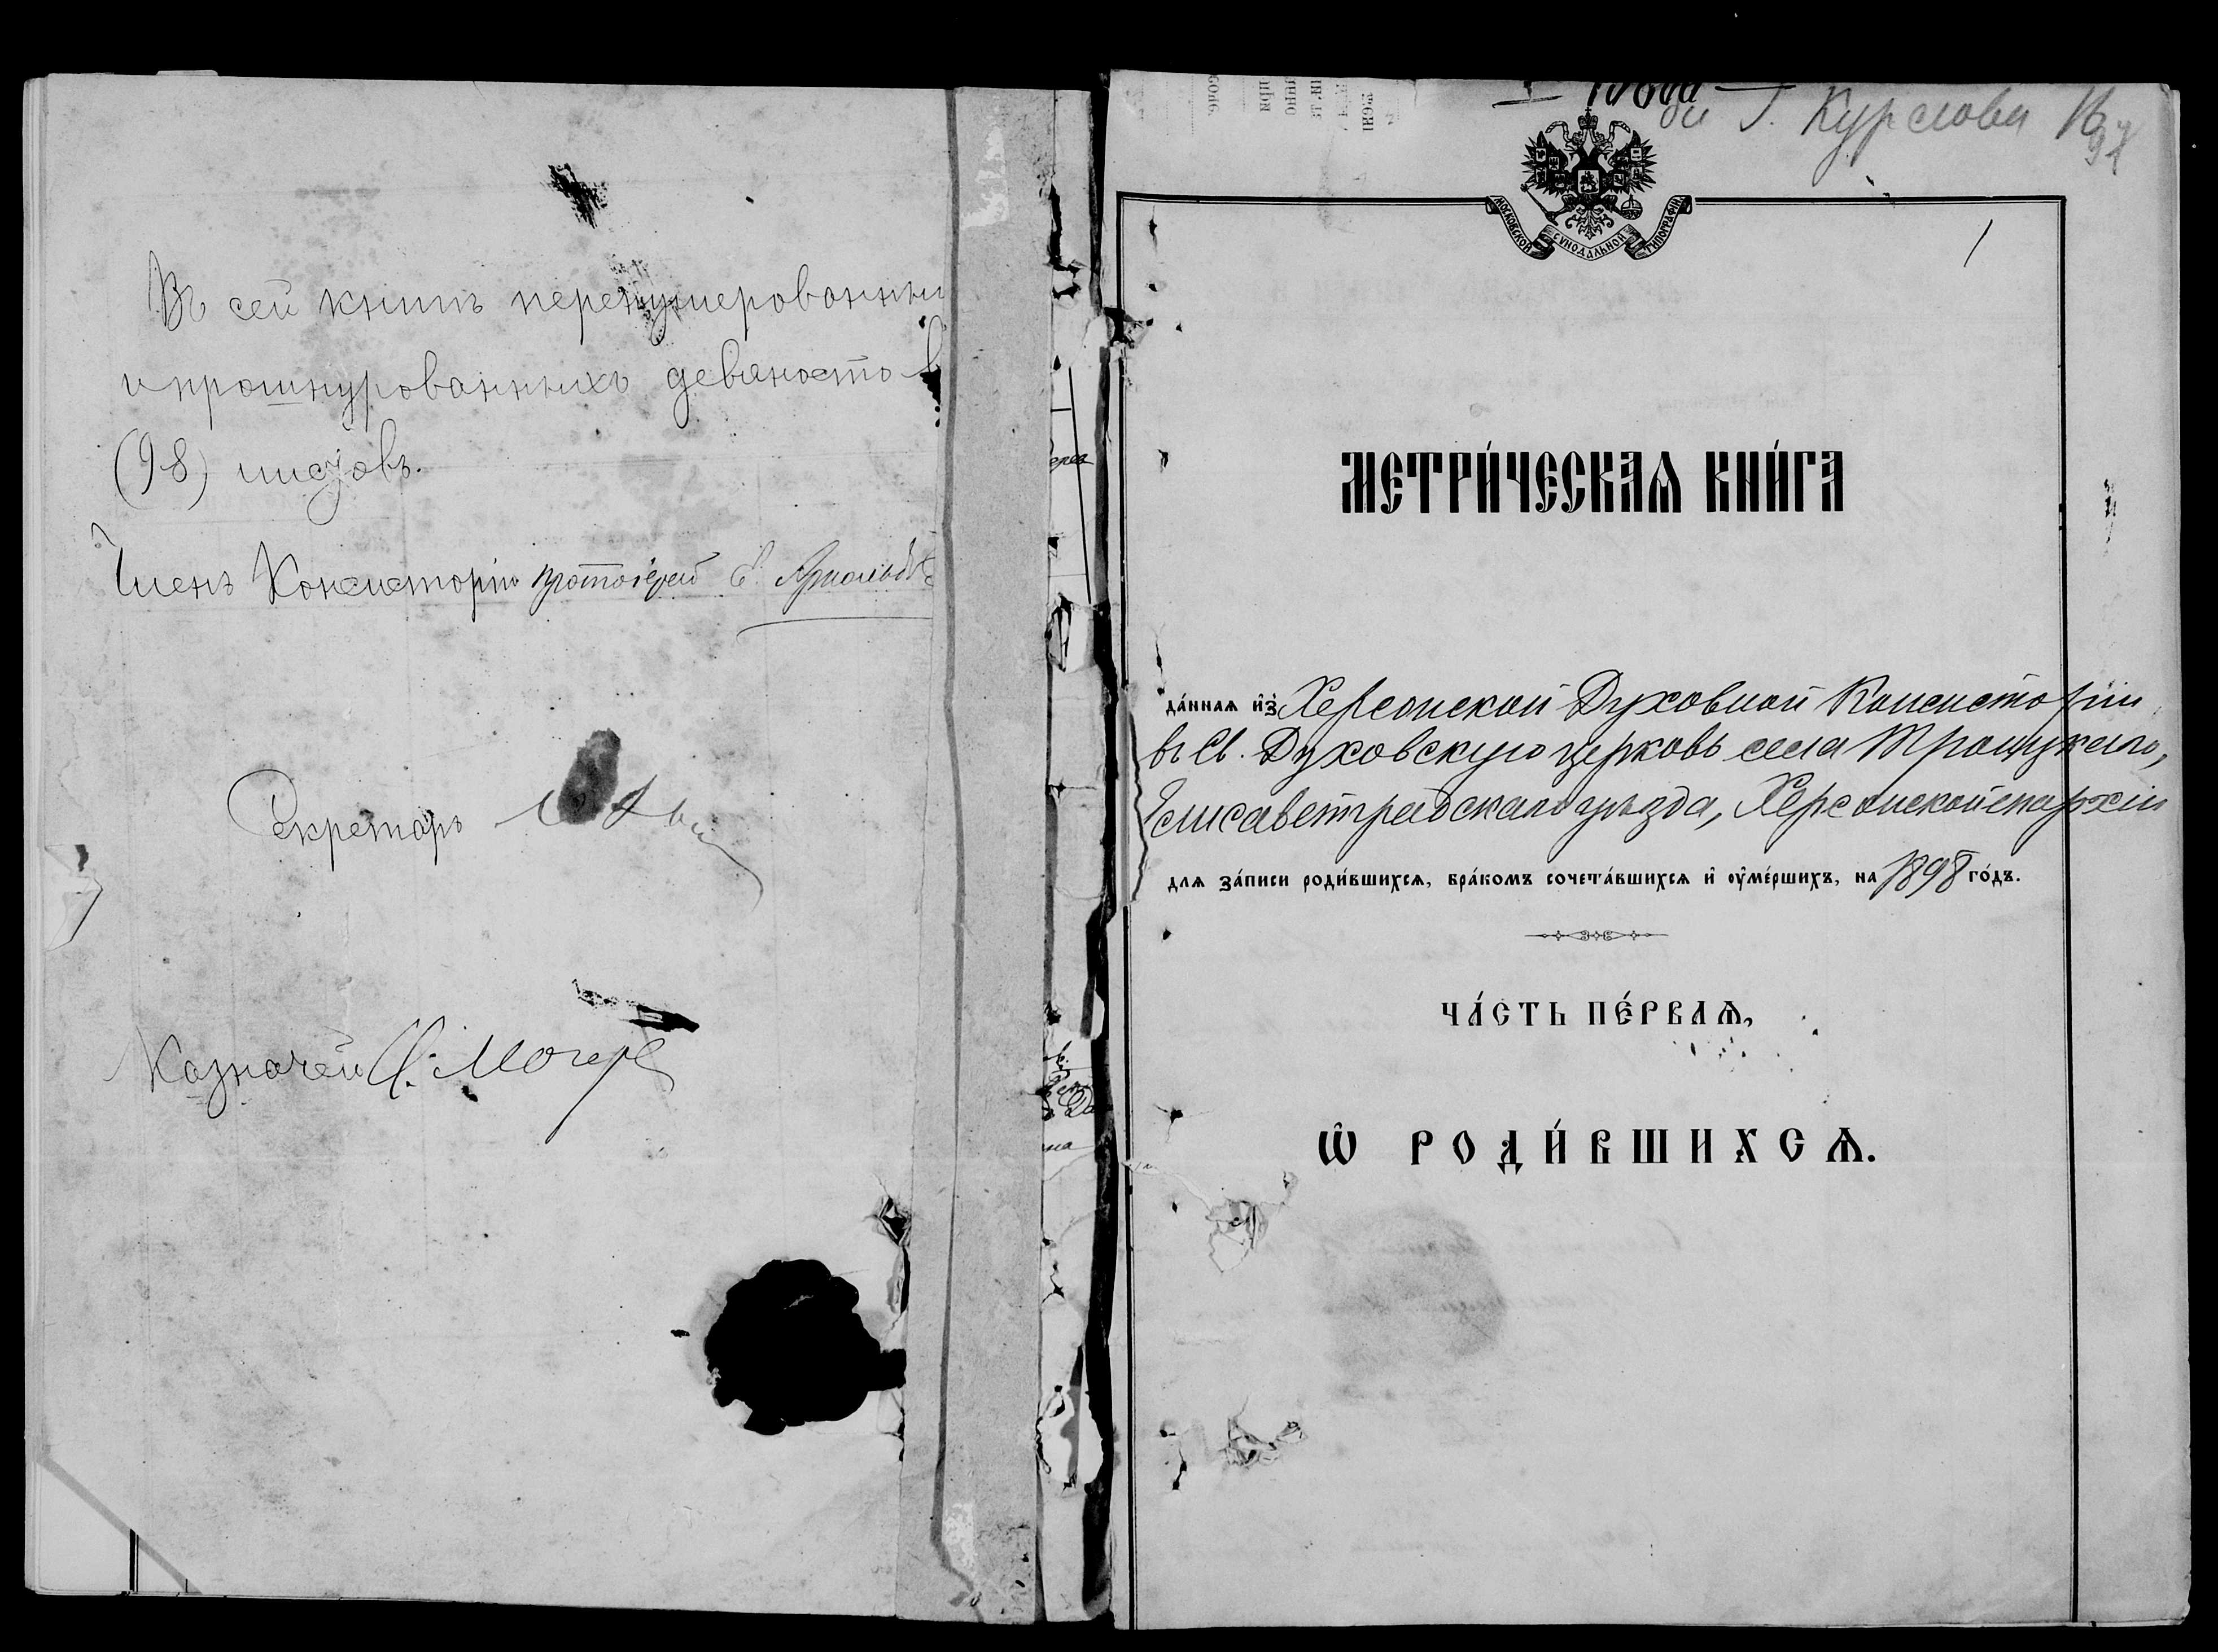 Въ сей книгѣ перенумерованны
и прошнурованныхъ девяносто в
(98) листовъ.
Членъ Консисторіи протоіерей
Секретарь
Казначей
Г. Курслова
1
МОСКОВСКОЙ СѴНОДАЛЬНОЙ ТИПОГРАФІИ
МЕТРИ́ЧЕСКАѦ КНИ́ГА
да́ннаѧ и҆з̾ Херсонской Духовной Консисторіи
въ Св. Духовскую церковь села
Елисаветградскаго уѣзда, Херсонской епархіи
длѧ за́писи роди́вшихсѧ, бра́комъ сочета́вшихсѧ и҆ ᲂу҆ме́ршихъ, на 1898 го́дъ.
ЧА́СТЬ ПЕ́РВАѦ,
Ѡ҆ РОДИ́ВШИХСѦ.